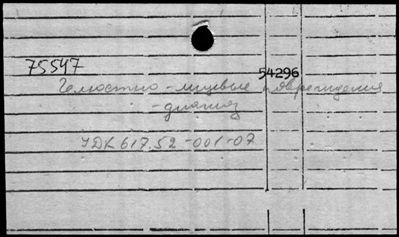 75547
54296
Челюстно-лицевые повреждения
-диагноз
УДК 617.52-001-07